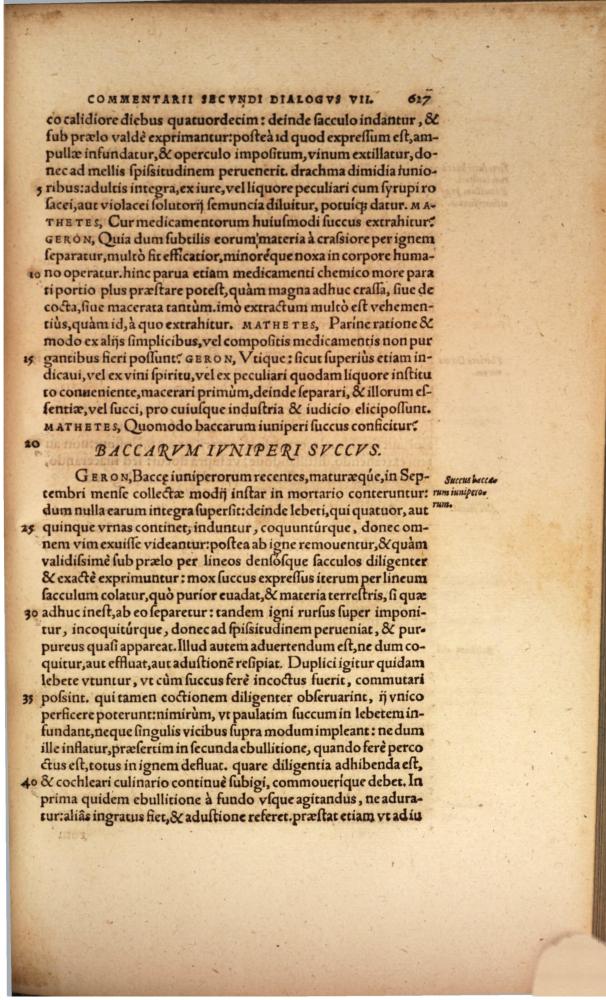 COMMENTARII SECVNDI DIALOGVS VII. 627
co calidiore diebus quatuordecim: deinde sacculo indantur, &
sub prælo valdè exprimantur: posteà id quod expressum est, am-
pullæ infundatur, & operculo impositum, vinum extillatur, do-
nec ad mellis spissitudinem peruenerit. drachma dimidia iunio-
5 ribus: adultis integra, ex iure, vel liquore peculiari cum syrupi ro
sacei, aut violacei solutorij semuncia diluitur, potuiq; datur. MA-
THETES, Cur medicamentorum huiusmodi succus extrahitur?
GERON, Quia dum subtilis eorum materia à crassiore per ignem
separatur, multò fit efficatior, minoréque noxa in corpore huma-
10 no operatur. hinc parua etiam medicamenti chemico more para
ti portio plus præstare potest, quàm magna adhuc crassa, siue de
cocta, siue macerata tantùm. imò extractum multò est vehemen-
tiùs, quàm id, à quo extrahitur. MATHETES, Parine ratione &
modo ex alijs simplicibus, vel compositis medicamentis non pur
15 gantibus fieri possunt? GERON, Vtique: sicut superiùs etiam in-
dicaui, vel ex vini spiritu, vel ex peculiari quodam liquore institu
to conueniente, macerari primùm, deinde separari, & illorum es-
sentiæ, vel succi, pro cuiusque industria & iudicio elici possunt.
MATHETES, Quomodo baccarum iuniperi succus conficitur?
20 BACCARVM IVNIPERI SVCCVS.
GERON, Baccę iuniperorum recentes, maturæq́ue, in Sep-
tembri mense collectæ modij instar in mortario conteruntur:
dum nulla earum integra supersit: deinde lebeti, qui quatuor, aut
Succus bacca-
rum iunipero-
rum.
25 quinque vrnas continet, induntur, coquuntúrque, donec om-
nem vim exuisse videantur: postea ab igne remouentur, & quàm
validissimè sub prælo per lineos densosque sacculos diligenter
& exactè exprimuntur: mox succus expressus iterum per lineum
sacculum colatur, quò purior euadat, & materia terrestris, si quæ
30 adhuc inest, ab eo separetur: tandem igni rursus super imponi-
tur, incoquitúrque, donec ad spissitudinem perueniat, & pur-
pureus quasi appareat. Illud autem aduertendum est, ne dum co-
quitur, aut effluat, aut adustionē resipiat. Duplici igitur quidam
lebete vtuntur, vt cùm succus ferè incoctus fuerit, commutari
35 possint. qui tamen coctionem diligenter obseruarint, ij vnico
perficere poterunt: nimirùm, vt paulatim succum in lebetem in-
fundant, neque singulis vicibus supra modum impleant: ne dum
ille inflatur, præsertim in secunda ebullitione, quando ferè perco
ctus est, totus in ignem defluat. quare diligentia adhibenda est,
40 & cochleari culinario continuè subigi, commouerique debet. In
prima quidem ebullitione à fundo vsque agitandus, ne adura-
tur: aliâs ingratus fiet, & adustione referet. præstat etiam vt ad iu